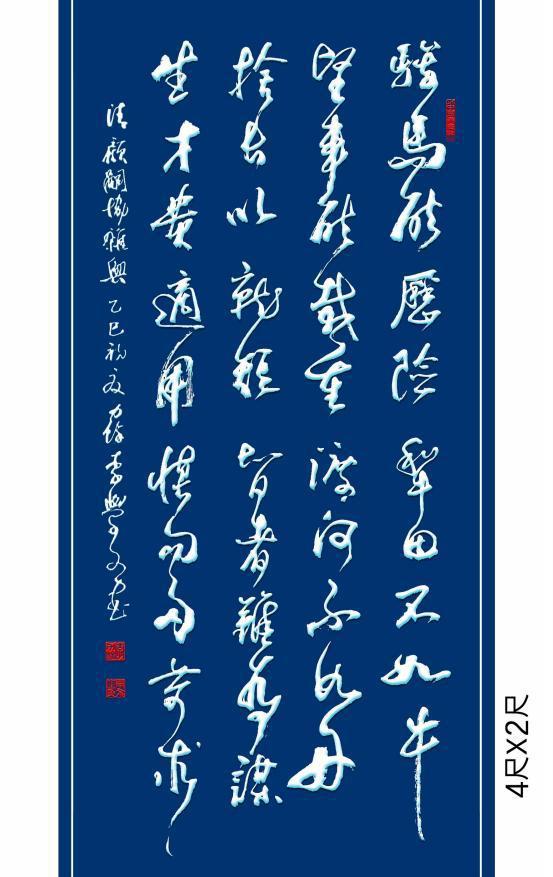 駿馬能歷險犂田不如牛
堅車能載重渡河不如舟
捨長以就短智者難為謀
生才貴適用慎勿多苛求
清顧嗣協雜興乙巳初夏李學文書
4尺X2尺